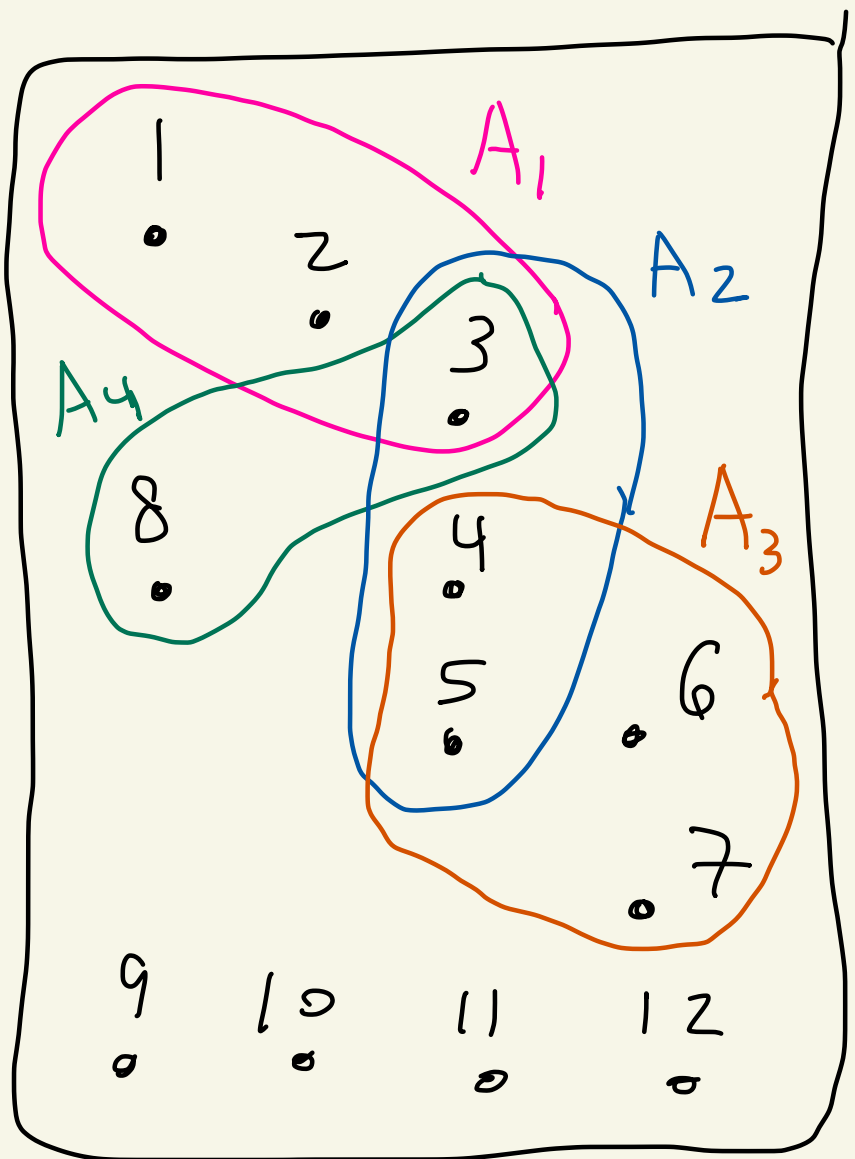 1
A1
2
A2
3
A4
8
4
A3
5
6
7
9 10 11 12